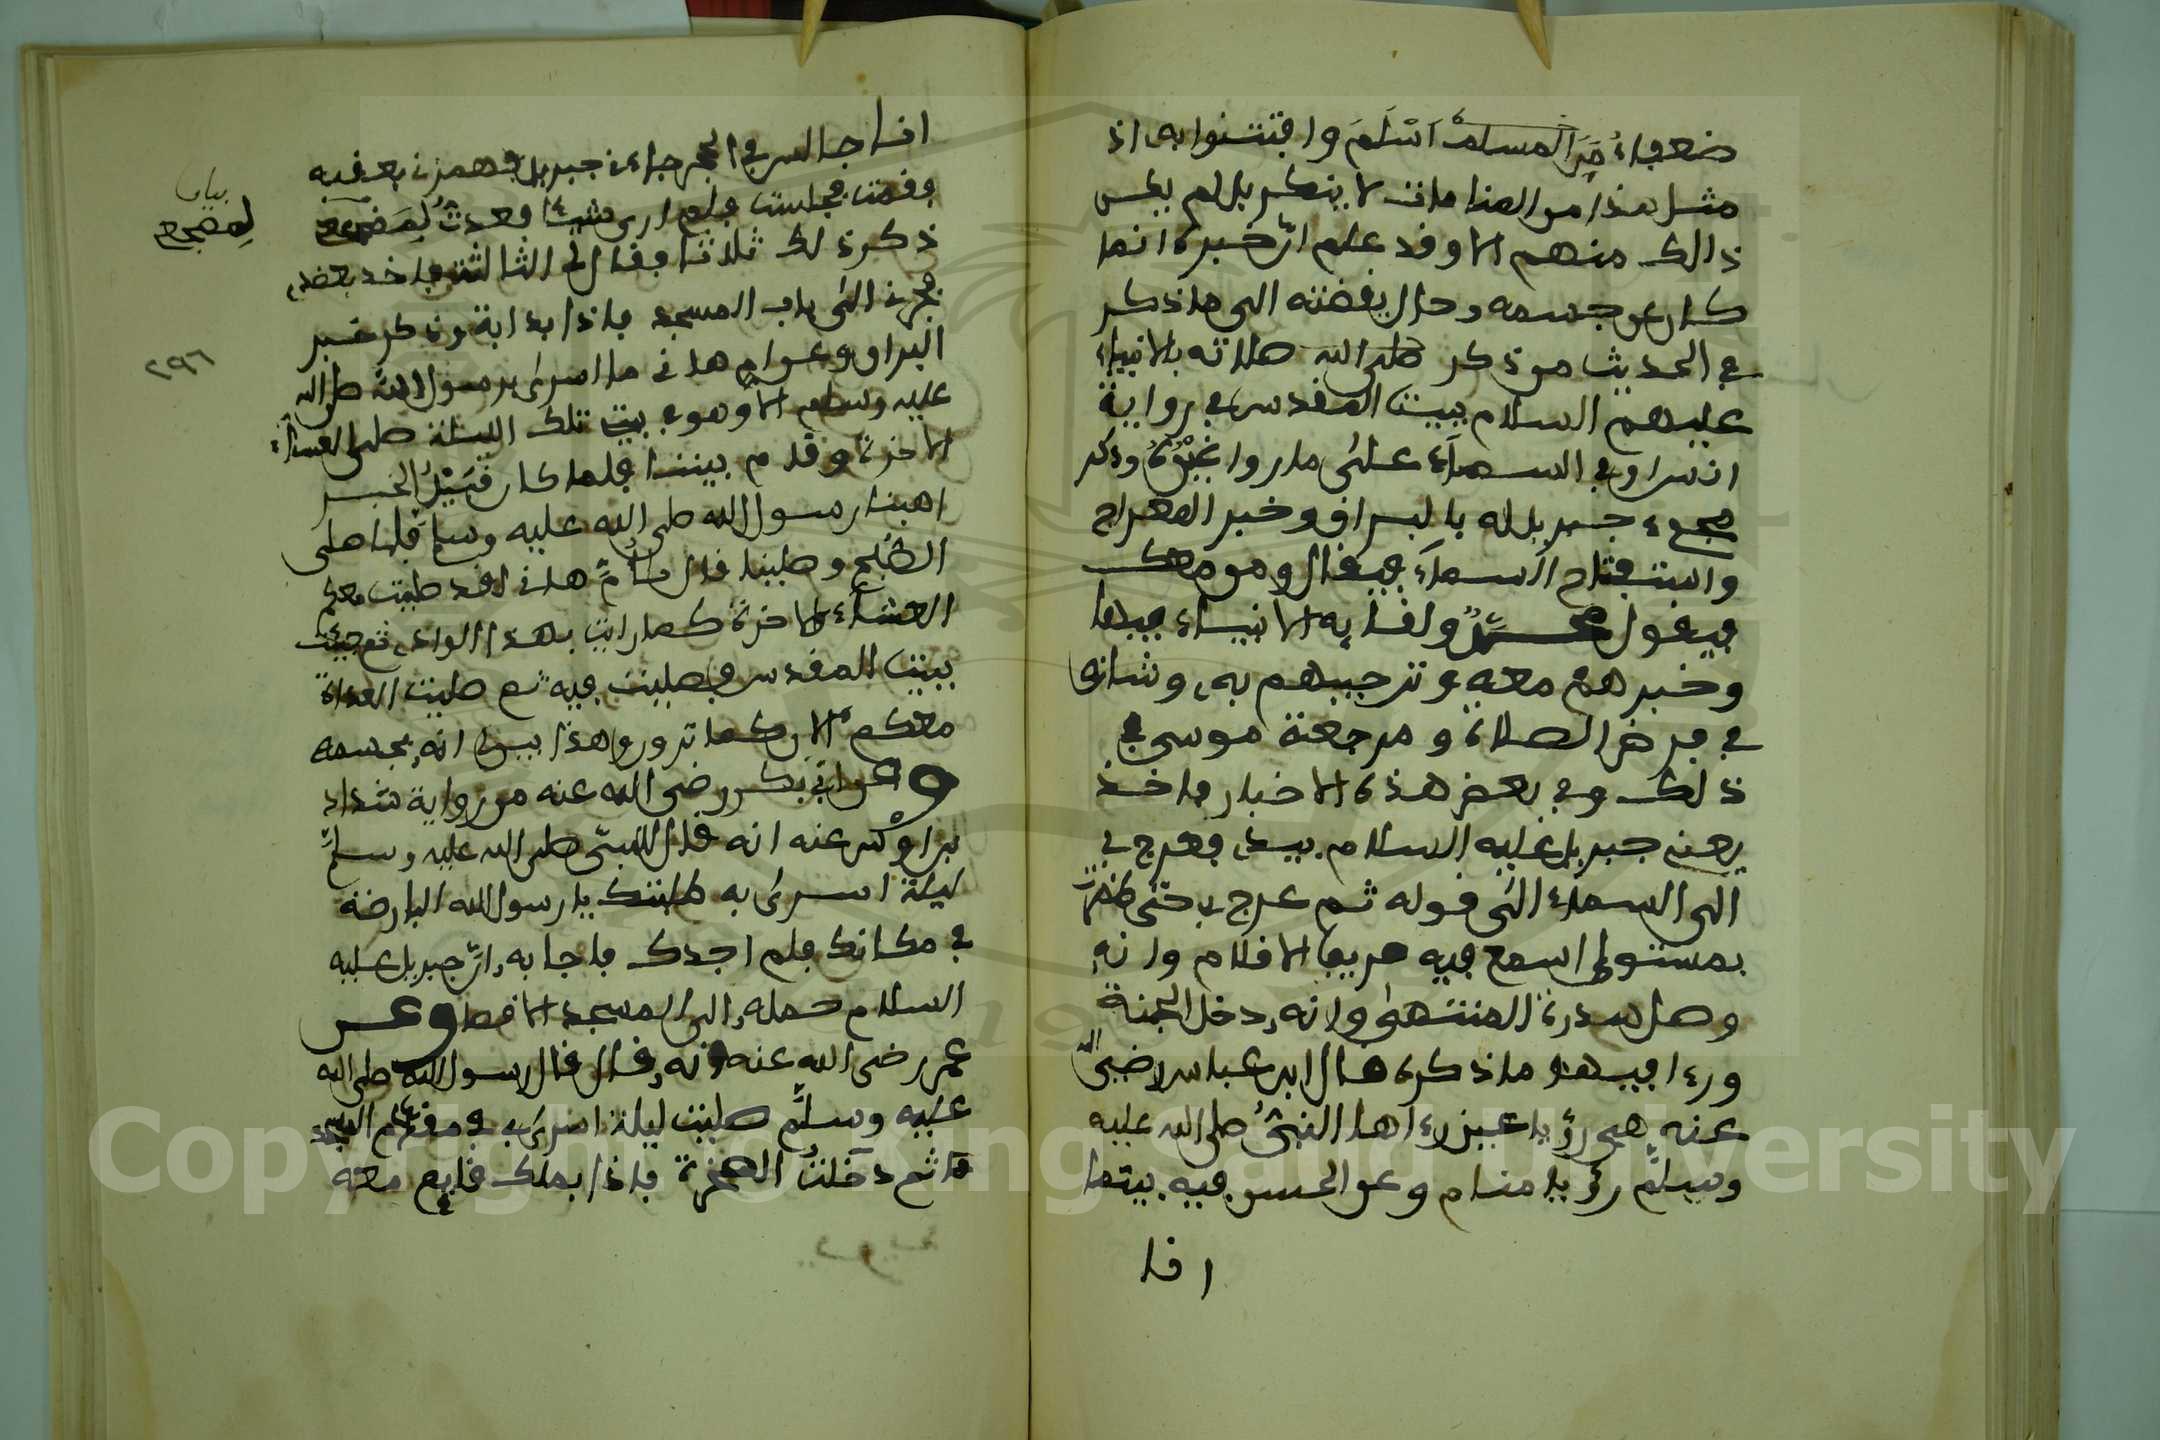 ضعفاءُ مِنَ المسلمين اسْلَمَ وافتتنوا به اذ
مثل هذا من المنامات لا ينكر بل لم يكن
ذالك منهم الا وقد علم انّ خبره انما
كان عن جسمه وحال يقضته الى ما ذكر
في الحديث من ذكر صلى الله صلاته بالانبياء
عليهم السلام ببيت المقدس في رواية
انس او في السماء على ما روا غَيْرُهُ وذكر
مجيء جبريل له بالبراق وخبر المعراج
واستفتاح السماء فيقال ومن معك
فيقول محمدٌ ولقايه الانبياء فيها
وخبرهم معه وترحيبهم به وشانه
في فرض الصلاة ومرجعته موسى في
ذلك وفي بعض هذه الاخبار فاخذ
يعني جبريل عليه السلام بيدي فعرج بي
الى السماء الى قوله ثم عرج بي حتى ظهرت
بمستوى اسمع فيه صريف الاقلام وانه
وصل سدرة المنتهى وانه دخل الجنة
وراء فيها ما ذكره قال ابن عباس رضي الله
عنه هي رؤيا عين رءاها النبيُ صلى الله عليه
وسلّم رؤيا منام وعن الحسن فيه بينما
انا
انا جالس في الحجر جاءني جبريل فهمزني بعقبه
فقمت فجلست فلم ارى شيئا فعدتُ لِمَضجعي
ذكر ذلك ثلاثا فقال في الثالثة فاخذ بعضدي
فجرني الى باب المسجد فاذا بدابة وذكر خبر
البراق وعن ام هاني ما اسرى برسول الله صلى الله
عليه وسلم الا وهو في بيتي تلك الليلة صلى العشاء
الاخرة وقام بيننا فلما كان قُبَيْلَ الفجر
اهبنا رسول الله صلى الله عليه وسلم فلما صلى
الصُّبح وصلينا قال يا امّ هاني لقد صليت معكم
العشاء الاخرة كما رايت بهذا الوادي ثم جيت
بيت المقدس فصليت فيه ثم صليت الغداة
معكم الان كما ترون وهذا بين انه بجسمه
وعن ابي بكر رضي الله عنه من رواية شداد
بن اوْس عنه انه قال للنبيّ صلى الله عليه وسلمّ
ليلة اسرى به طلبتك يا رسول الله البارحة
في مكانك فلم اجدك فاجابه انّ جبريل عليه
السلام حمله الى المسجد الاقصا وعن
عمر رضي الله عنه انه قال قال رسول الله صلى الله
عليه وسلّم صليت ليلة اسرى بي في مقدم المسجد
ثم دخلتُ الصخرة فاذا بملك قايم معه
بيان
لِمضجعي
٢٩٦
Copyright © King Saud University